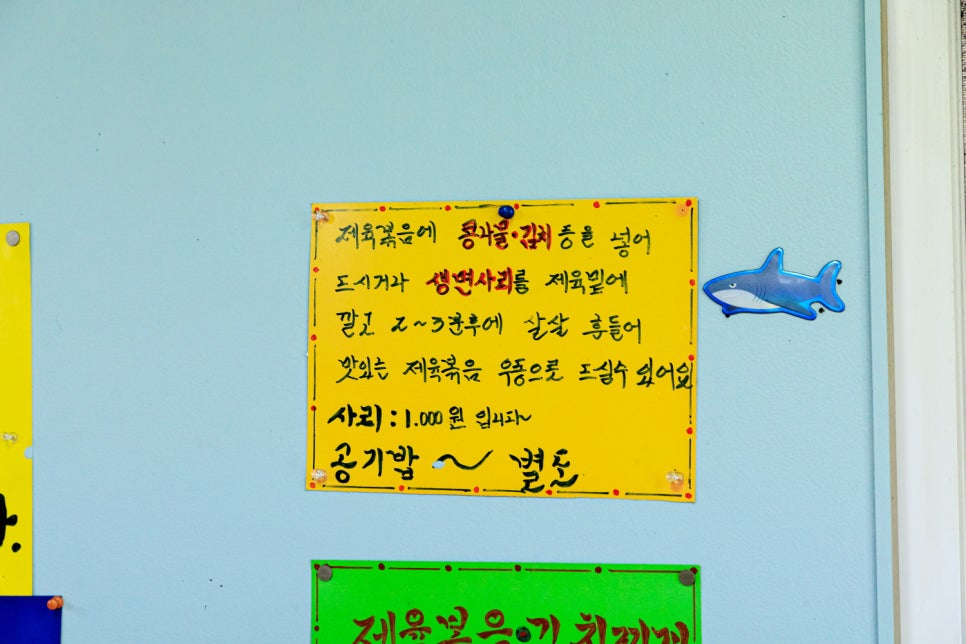 제육볶음에 콩나물·김치 등을 넣어
드시거나 생면사리를 제육밑에
깔고 2~3분후에 살살 흔들어
맛있는 제육볶음 우동으로 드실수 있어요
사리 : 1.000원 입니다~
공기밥 ~ 별도
제육볶음·김치찌개